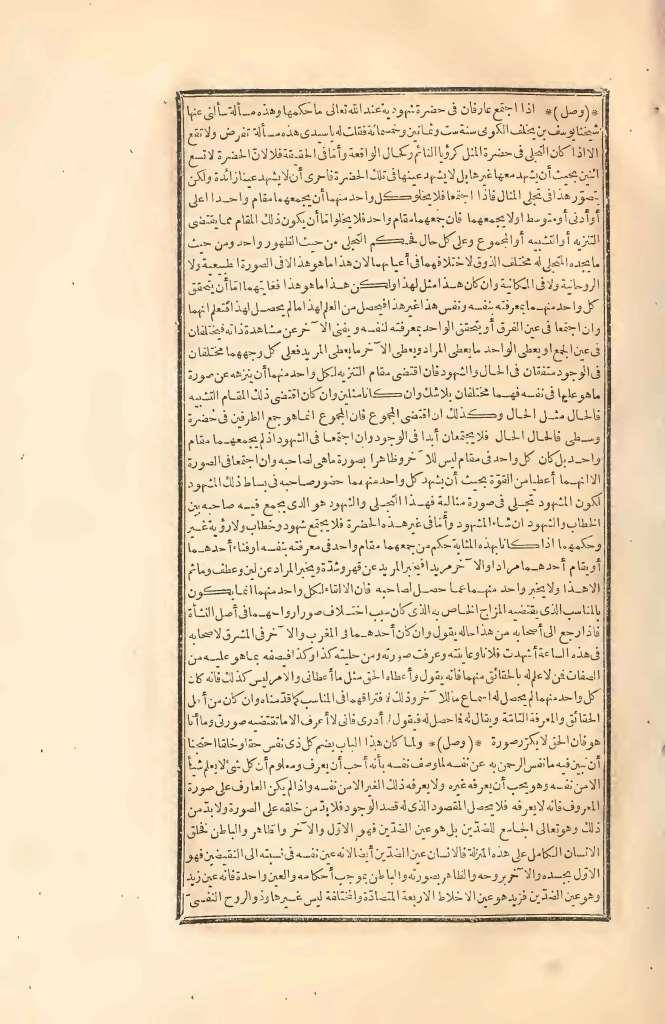 *(وصل)* اذا اجتمع عارفان فى حضرة شهودية عند الله تعالى ما حكمها وهذه مسألة سألنى عنها
شيخنا يوسف بن يخلف الكومى سنة ست وثمانين وخمسمائة فقلت له ياسيدى هذه مسألة تفرض ولا تقع
الا اذا كان التجلى فى حضرة المثل كرؤيا النائم وكحال الواقعة وأما فى الحقيقة فلا لان الحضرة لا تسع
اثنين بحيث أن يشهد معها غيرها بل لا يشهد عينها فى تلك الحضرة فاحرى أن لا يشهد عينا زائدة ولكن
يتصور هذا فى تجلى المثال فاذا اجتمعا فلا يخلو كل واحد منهما أن يجمعهما مقام واحد اما أعلى
أو أدنى أو متوسط أو لا يجمعهما فان جمعهما مقام واحد فلا يخلو اما أن يكون ذلك المقام مما يقتضى
التنزيه أو التشبيه أو المجموع وعلى كل حال فحكم التجلى من حيث الظهور واحد ومن حيث
ما يجده المتجلى له مختلف الذوق لاختلافهما فى أعيانهما لان هذا ما هو هذا لا فى الصورة الطبيعية ولا
الروحانية ولا فى المكانية وان كان هذا مثل لهذا ولكن هذا ما هو هذا فغايتهما اما أن يتحقق
كل واحد منهما بمعرفته بنفسه ونفس هذا غير هذا فيحصل من العلم لهذا ما لم يحصل لهذا فتعلم انهما
وان اجتمعا فى عين الفرق أو يتحقق الواحد بمعرفته لنفسه ويفنى الآخر عن مشاهدة ذاته فيختلفان
فى عين الجمع او يعطى الواحد ما يعطى المراد ويعطى الآخر ما يعطى المريد فعلى كل وجه هما مختلفان
فى الوجود متفقان فى الحال والشهود فان اقتضى مقام التنزيه لكل واحد منهما أن ينزهه عن صورة
ما هو عليها فى نفسه فهما مختلفان بلا شك وان كانا مثلين وان كان اقتضى ذلك المقام التشبيه
فالحال مثل الحال وكذلك ان اقتضى المجموع فان المجموع انما هو جمع الطرفين فى حضرة
وسطى فالحال الحال فلا يجتمعان أبدا فى الوجود وان اجتمعا فى الشهود اذ لم يجمعهما مقام
واحد بل كان كل واحد فى مقام ليس للآخر وظاهرا بصورة ما هى لصاحبه وان اجتمعا فى الصورة
الا انهما أعطيا من القوة بحيث أن يشهد كل واحد منهما حضور صاحبه فى بساط ذلك المشهود
لكون المشهود تجلى فى صورة مثالية فهذا التجلى والشهود هو الذى يجمع فيه صاحبه بين
الخطاب والشهود ان شاء المشهود وأما فى غير هذه الحضرة فلا يجتمع شهود وخطاب ولا رؤية غير
وحكمهما اذا كانا بهذه المثابة حكم من جمعهما مقام واحد فى معرفته بنفسه أو فناء أحدهما
أو يقام أحدهما مرادا والآخر مريدا فيخبر المريد عن قهر وشدة ويخبر المراد عن لين وعطف وما ثم
الا هذا ولا يخبر واحد منهما عما حصل لصاحبه فان الالقاء لكل واحد منهما انما يكون
بالمناسب الذى يقتضيه المزاج الخاص به الذى كان سبب اختلاف صور أرواحهما فى أصل النشأة
فاذا رجع الى أصحابه من هذا حاله يقول وان كان أحدهما فى المغرب والآخر فى المشرق لاصحابه
فى هذه الساعة أشهدت فلانا وعاينته وعرفت صورته ومن حليته كذا وكذا فيصفه بما هو عليه من
الصفات فمن لا علم له بالحقائق منهما فانه يقول وأعطاه الحق مثل ما أعطانى والامر ليس كذلك فانه كان
كل واحد منهما لم يحصل له اسماع ما للآخر وذلك لافتراقهما فى المناسب كما قدمناه وان كان من أهل
الحقائق والمعرفة التامة ويقال له فما حصل له فيقول لا أدرى فانى لا أعرف الا ما تقتضيه صورتى وما أنا
هو فان الحق لا يكرر صورة *(وصل)* ولما كان هذا الباب يضم كل ذى نفس حقا وخلقا احتجنا
أن نبين فيه ما نفس الرحمن به عن نفسه لما وصف نفسه بأنه أحب أن يعرف ومعلوم أن كل شئ لا يعلم شيأ
الا من نفسه وهو يحب أن يعرفه غيره ولا يعرفه ذلك الغير الا من نفسه واذا لم يكن العارف على صورة
المعروف فانه لا يعرفه فلا يحصل المقصود الذى له قصد الوجود فلا بد من خلقه على الصورة ولا بد من
ذلك وهو تعالى الجامع للضدين بل هو عين الضدين فهو الاول والآخر والظاهر والباطن فخلق
الانسان الكامل على هذه المنزلة فالانسان عين الضدين أيضا لانه عين نفسه فى نسبته الى النقيضين فهو
الاول بجسده والآخر بروحه والظاهر بصورته والباطن بموجب أحكامه والعين واحدة فانه عين زيد
وهو عين الضدين فزيد هو عين الاخلاط الاربعة المتضادة والمختلفة ليس غيرها وذو الروح النفسى